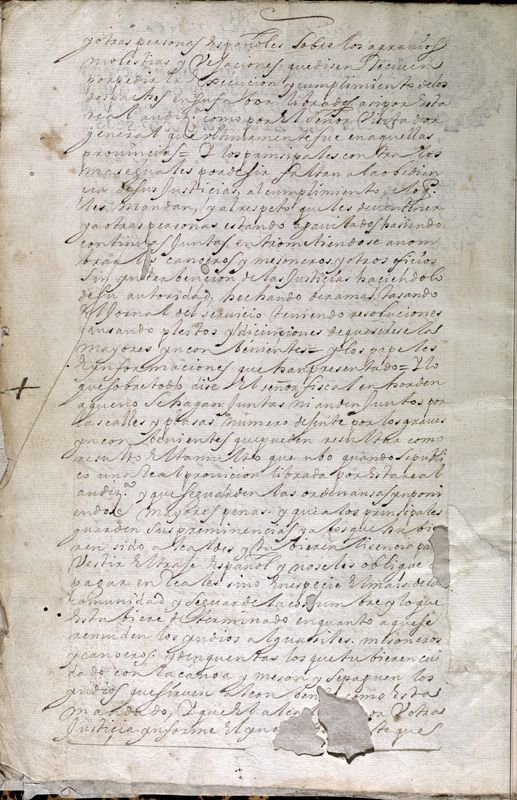 y otras personas españoles sobre los agravios
molestias y vejaciones que disen reciuen
por pedir la execucion y cumplimiento de los
despachos en su fabor librados asi por esta
real audiª como por el señor visitador
general que ultimamente fue en aquellas
provincias = Y los principales contra los
maseguales por desir faltan a la obedien
cia de sus Justicias, al cumplimiento de lo q
les mandan, y al respeto que les deven tener
y a otras personas estando aquilados hasiendo
continuas Juntas entrometiendose a nom
brar canoeros y mesoneros, y otros oficios
sin yntervencion de las Justicias haciendolo
de su autoridad, hechando derramas, tasando
el Jornal del servicio teniendo resoluciones
causando pleitos y diciunciones de que se creselas
mayores ynconbenientes = y los papeles
e ynformaciones que han presentado = Y lo
que sobre todo dise el señor fiscal en horden
a que no se hagan Juntas ni anden Juntos por
las calles y plasas numero de jente por los graves
ynconbenientes que pueden resultar como
resulto el tumulto que ubo quando se publi
co una Real provicion librada por esta real
audiª y que se guarden las ordenansas ynponi
endoles mayores penas. y que a los principales
guarden sus preminencias y a los que hubie
ren sido alcaldes y tubieren lisencia pa
vestir el traje español y no se les oblique a
pagar en reales sino en especie el mais de la
comunidad y se guarde la costumbre y lo que
estubiere determinado en quanto a que se
remuden los yndios alguasiles, mesoneros
y canoeros: y den quentas los que tubieren cui
dado con la canoa y meson y se paguen los
yndios que sirven al con como esta
mandado, Y que el alc otra
Justicia ynforme el yn te que s